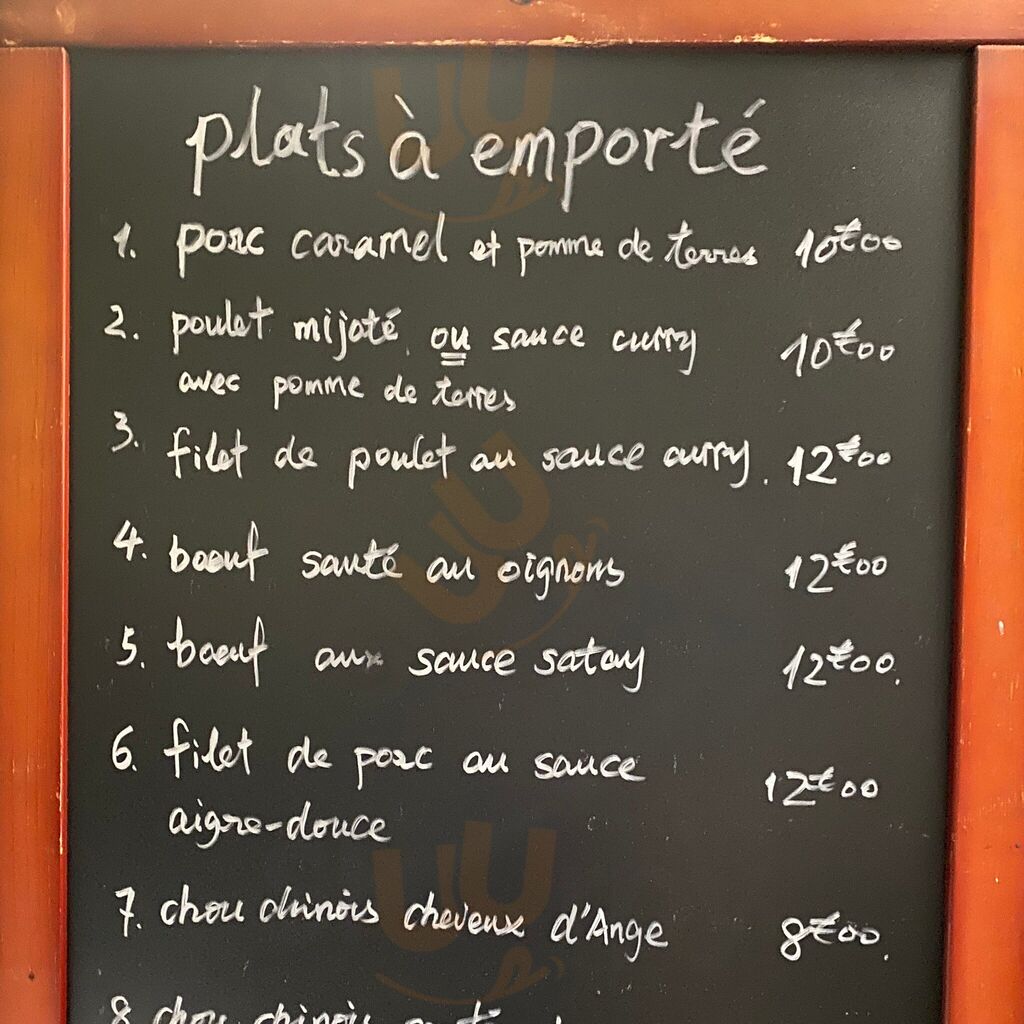 plats à emporté
1. porc caramel et pomme de terres 10€00
2. poulet mijoté ou sauce curry 10€00
avec pomme de terres
3. filet de poulet au sauce curry. 12€00
4. boeuf santé au oignons 12€00
5. boeuf aux sauce satay 12€00.
6. filet de porc au sauce 12€00
aigre-douce
7. chou chinois cheveux d'Ange 8€00.
8 chou chinois